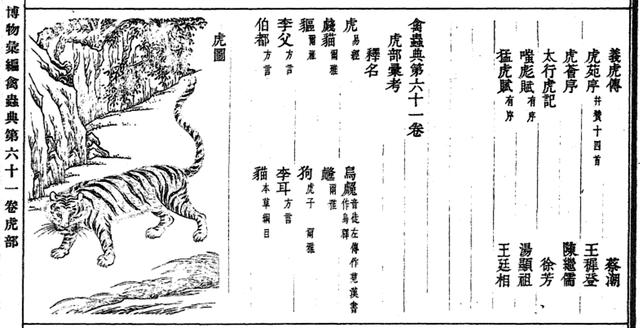 義虎傳 蔡潮
虎苑序 并贊十四首 王穉登
虎薈序 陳繼儒
太行虎記 徐芳
嗤彪賦 有序 湯顯祖
猛虎賦 有序 王廷相
禽蟲典第六十一卷
虎部彙考
釋名
虎 易經 烏 音徒左傳作菟漢書作烏檡
貓 爾雅 爾雅
貙 爾雅 狗 虎子 爾雅
李父 方言 李耳 方言
伯都 方言 貓 本草綱目
虎圖
博物彙編禽蟲典第六十一卷虎部